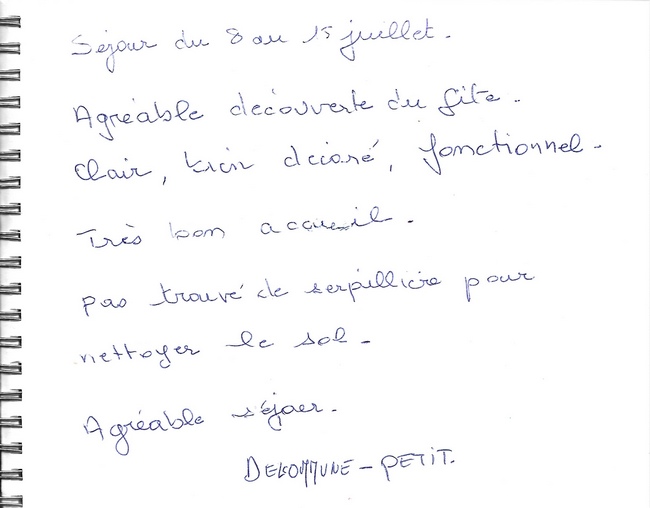 Séjour du 8 au 15 juillet.
Agréable découverte du gîte.
Clair, bien décoré, fonctionnel.
Très bon accueil.
pas trouvé de serpillière pour
nettoyer le sol.
Agréable séjour.
DELOMMUNE - PETIT.